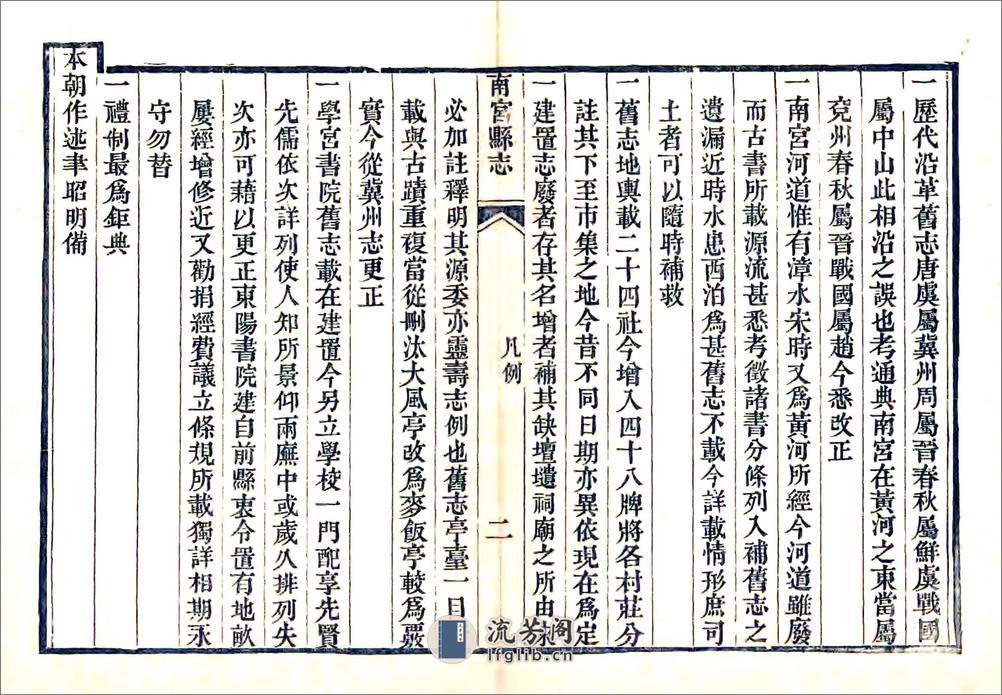 一歷代沿革舊志唐虞屬冀州周屬晉春秋屬鮮虞戰國
屬中山此相沿之誤也考通典南宮在黃河之東當屬
兗州春秋屬晉戰國屬趙今悉改正
一南宮河道惟有漳水宋時又爲黃河所經今河道雖廢
而古書所載源流甚悉考徵諸書分條列入補舊志之
遺漏近時水患西泊爲甚舊志不載今詳載情形庶司
土者可以隨時補救
一舊志地輿載二十四社今增入四十八牌將各村莊分
註其下至市集之地今昔不同日期亦異依現在爲定
一建置志廢者存其名增者補其缺壇壝祠廟之所由
南宮縣志
凡例
二
必加註釋明其源委亦靈壽志例也舊志亭臺一目
載與古蹟重複當從刪汰大風亭改爲麥飯亭較爲覈
實今從冀州志更正
一學宮書院舊志載在建置今另立學校一門配享先賢
先儒依次詳列使人知所景仰兩廡中或歲久排列失
次亦可藉以更正東陽書院建自前縣袁令置有地畝
屢經增修近又勸捐經費議立條規所載獨詳相期永
守勿替
一禮制最爲鉅典
本朝作述聿昭明備
流芳阁
lfglib.cn